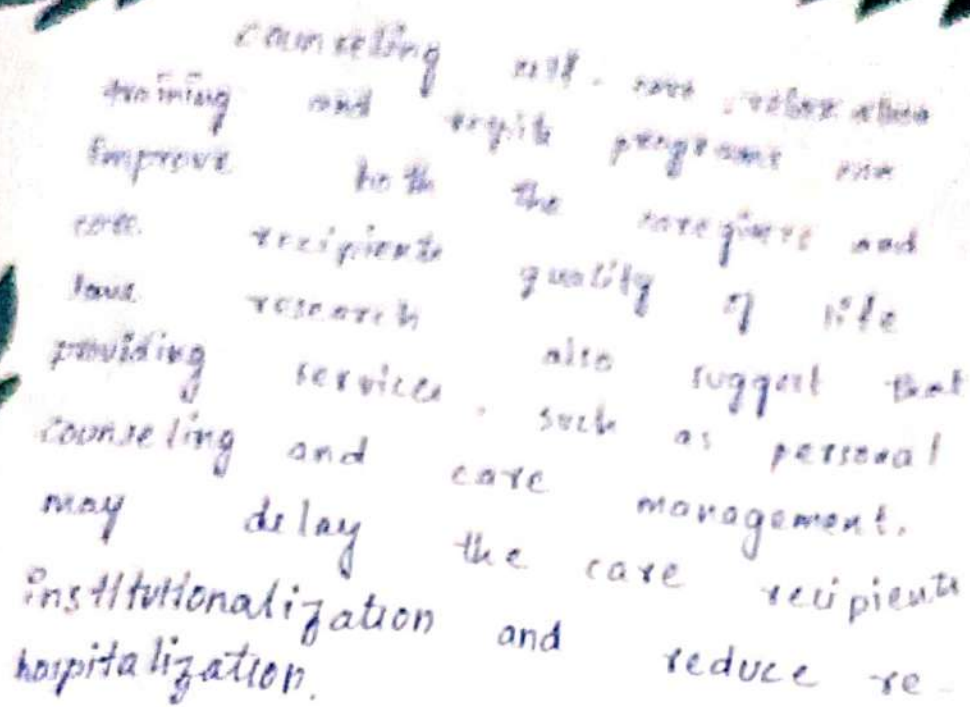 counseling self-care relaxation
training and respite programs can
improve both the caregivers and
care recipients quality of life
have research also suggest that
providing services, such as personal
counseling and care management.
may delay the care recipients
institutionalization and reduce re-
hospitalization.